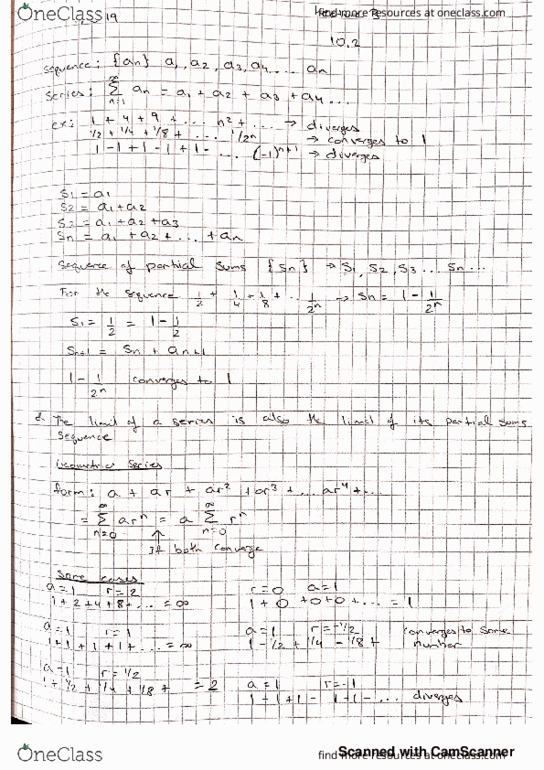 OneClass
19
find more resources at oneclass.com
10.2
sequence: {an} a1, a2, a3, a4 .... an
series: ∞∑n=1 an = a1 + a2 + a3 + a4 ...
ex: 1 + 4 + 9 + ... n² + ... → diverges
1/2 + 1/4 + 1/8 + ... 1/2ⁿ → converges to 1
1 - 1 + 1 - 1 + 1 - ... (-1)ⁿ⁺¹ → diverges
S1 = a1
S2 = a1 + a2
S3 = a1 + a2 + a3
Sn = a1 + a2 + ... + an
Sequence of partial sums {Sn} → S1, S2, S3 ... Sn ...
For the sequence 1/2 + 1/4 + 1/8 + ... 1/2ⁿ → Sn = 1 - 1/2ⁿ
S1 = 1/2 = 1 - 1/2
Sn+1 = Sn + an+1
1 - 1/2ⁿ converges to 1
The limit of a series is also the limit of its partial sums
sequence
Geometric Series
form: a + ar + ar² + ar³ + ... ar⁴ + ...
= ∞∑n=0 arⁿ = a ∞∑n=0 rⁿ
↑
If both converge
Some cases
a = 1 r = 2
1 + 2 + 4 + 8 + ... = ∞
r = 0 a = 1
1 + 0 + 0 + 0 + ... = 1
a = 1 r = 1
1 + 1 + 1 + 1 + ... = ∞
a = 1 r = -1/2 converges to some
1 - 1/2 + 1/4 - 1/8 + number
a = 1 r = 1/2
1 + 1/2 + 1/4 + 1/8 + = 2
a = 1 r = -1
1 - 1 + 1 - 1 + 1 - ... diverges
OneClass
find more resources at oneclass.com
Scanned with CamScanner